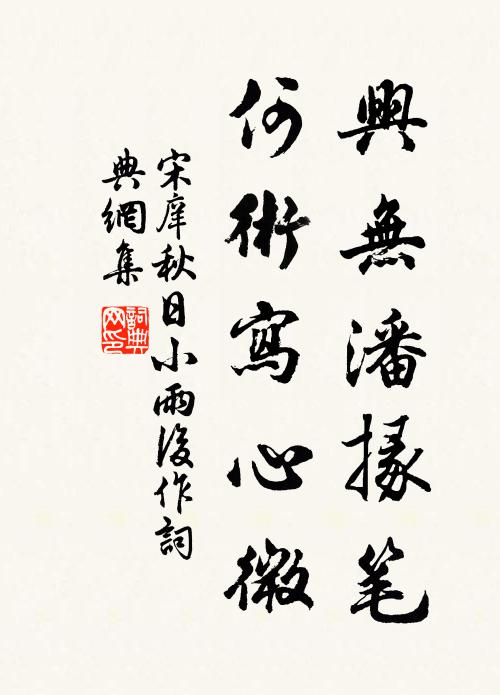 興無潘掾笔
何術寫心微
宋庠秋日小雨後作詞
典網集
詞典
网印